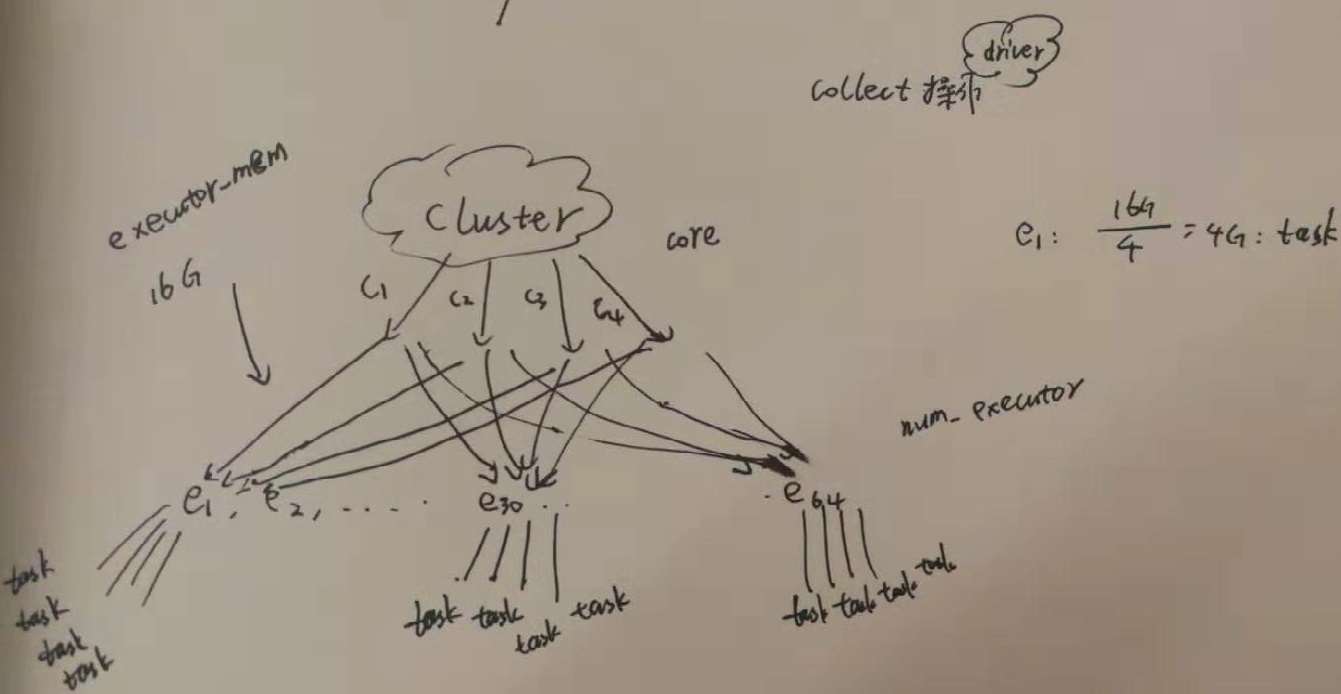 driver
collect 操作
executor_mem
16G
Cluster
core
e₁: 16G/4 = 4G: task
C₁ C₂ C₃ C₄
num_executor
e₁, e₂, ..... e₃₀ .. . e₆₄
task
task
task
task
task task task task
task task task task